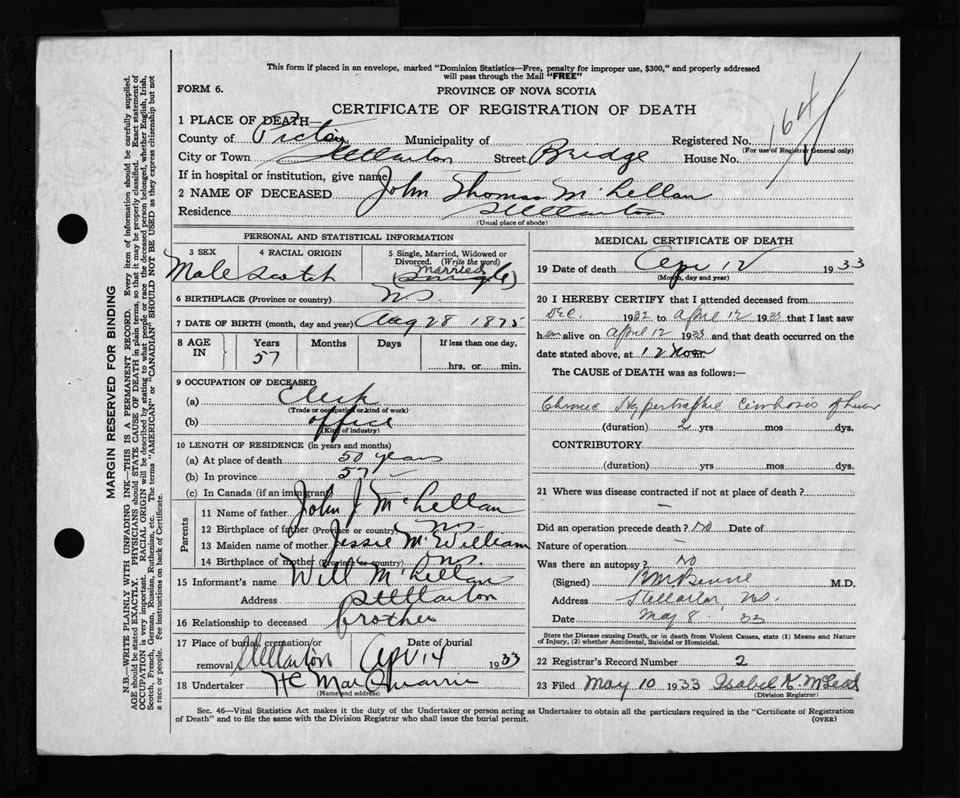 This form if placed in an envelope, marked "Dominion Statistics—Free, penalty for improper use, $300," and properly addressed
will pass through the Mail "FREE"
FORM 6.
PROVINCE OF NOVA SCOTIA
CERTIFICATE OF REGISTRATION OF DEATH
1 PLACE OF DEATH—
County of Pictou Municipality of Registered No. 164
(For use of Registrar General only)
City or Town Stellarton Street Bridge House No.
If in hospital or institution, give name
2 NAME OF DECEASED John Thomas McLellan
Residence Stellarton
(Usual place of abode)
PERSONAL AND STATISTICAL INFORMATION
3 SEX 4 RACIAL ORIGIN 5 Single, Married, Widowed or
Divorced. (Write the word)
Male Scotch married (Single)
6 BIRTHPLACE (Province or country) NS.
7 DATE OF BIRTH (month, day and year) Aug 28 1875
8 AGE IN Years Months Days If less than one day,
57 hrs. or min.
9 OCCUPATION OF DECEASED
(a) Clerk
(Trade or occupation or kind of work)
(b) office
(Kind of industry)
10 LENGTH OF RESIDENCE (in years and months)
(a) At place of death 50 years
(b) In province 57 —
(c) In Canada (if an immigrant)
Parents
11 Name of father John J McLellan
12 Birthplace of father (Province or country) NS.
13 Maiden name of mother Jessie McWilliam
14 Birthplace of mother (Province or country) NS.
15 Informant's name Will McLellan
Address Stellarton
16 Relationship to deceased brother
17 Place of burial, cremation/or Date of burial
removal Stellarton Apr 14 1933
18 Undertaker HC MacQuarrie
(Name and address)
MEDICAL CERTIFICATE OF DEATH
19 Date of death Apr 12 1933
(Month, day and year)
20 I HEREBY CERTIFY that I attended deceased from
Dec. 1932 to April 12 1933 that I last saw
him alive on April 12 1933 and that death occurred on the
date stated above, at 12 Noon
The CAUSE of DEATH was as follows:—
Chronic Hypertrophic Cirrhosis of Liver
(duration) 2 yrs mos dys.
CONTRIBUTORY
(duration) yrs mos dys.
21 Where was disease contracted if not at place of death?
—
Did an operation precede death? No Date of
Nature of operation —
Was there an autopsy? No
(Signed) M.D.
Address Stellarton, NS.
Date May 8 33
State the Disease causing Death, or in death from Violent Causes, state (1) Means and Nature
of Injury, (2) whether Accidental, Suicidal or Homicidal.
22 Registrar's Record Number 2
23 Filed May 10 1933 Isabel K McLeod
(Division Registrar)
Sec. 46—Vital Statistics Act makes it the duty of the Undertaker or person acting as Undertaker to obtain all the particulars required in the "Certificate of Registration
of Death" and to file the same with the Division Registrar who shall issue the burial permit.
(OVER)
MARGIN RESERVED FOR BINDING
N.B.—WRITE PLAINLY WITH UNFADING INK—THIS IS A PERMANENT RECORD. Every item of information should be carefully supplied.
AGE should be stated EXACTLY. PHYSICIANS should STATE CAUSE OF DEATH in plain terms, so that it may be properly classified. Exact statement of
OCCUPATION is very important. RACIAL ORIGIN will be described by stating to what people or race the deceased person belonged, whether English, Irish,
Scotch, French, German, Russian, Ruthenian, etc. The terms "AMERICAN" or "CANADIAN" SHOULD NOT BE USED as they express citizenship but not
a race or people. See instructions on back of Certificate.